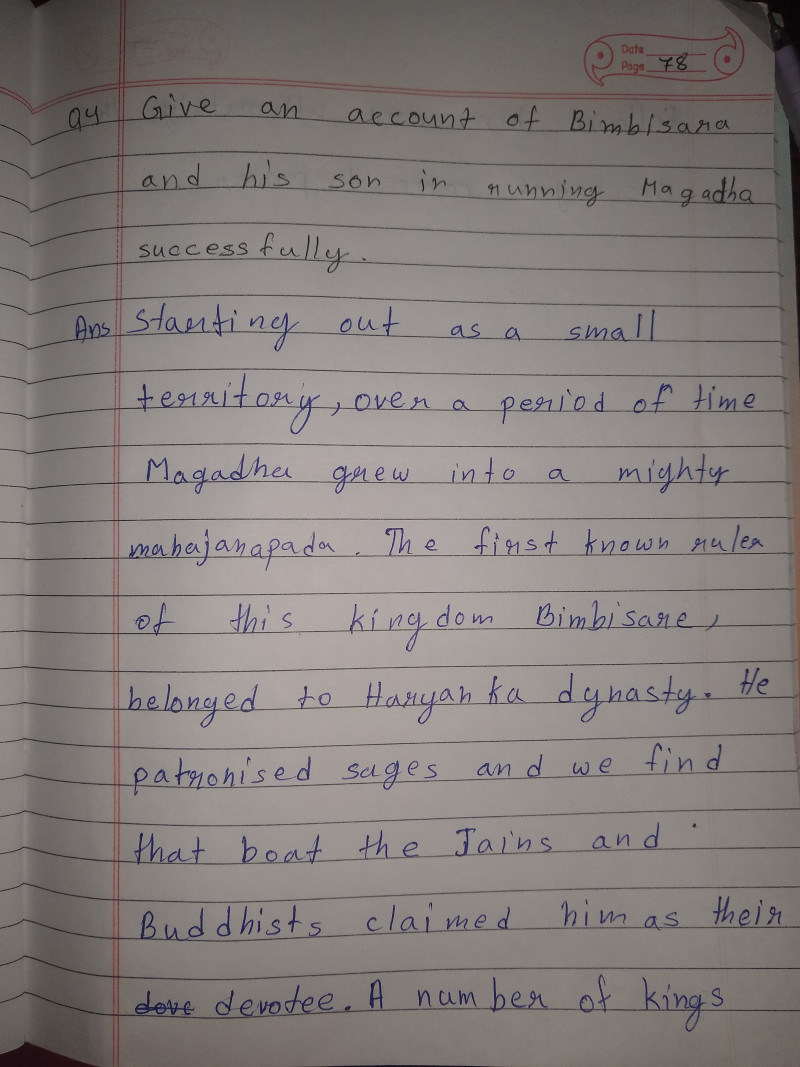 Date
Page 78
Q4 Give an account of Bimbisara
and his son in running Magadha
successfully.
Ans Starting out as a small
territory, over a period of time
Magadha grew into a mighty
mahajanapada. The first known ruler
of this kingdom Bimbisare,
belonged to Haryanka dynasty. He
patronised sages and we find
that boat the Jains and
Buddhists claimed him as their
dove devotee. A number of kings